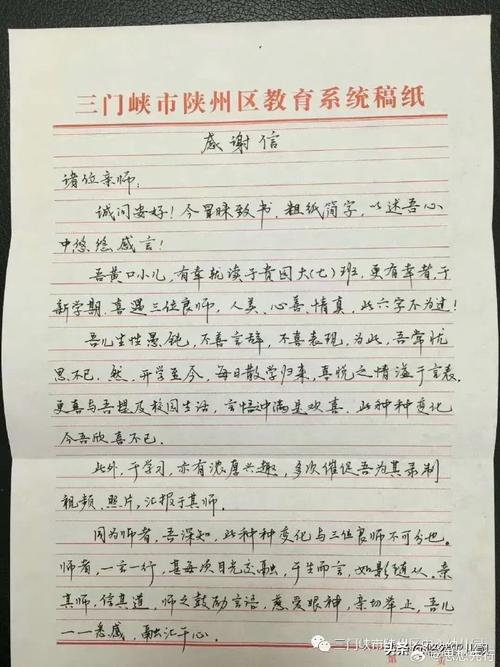 三门峡市陕州区教育系统稿纸
感谢信
诸位亲师:
诚问安好!今冒昧致书,粗纸简字,以述吾心
中悠悠感言!
吾黄口小儿,有幸就读于贵园大(七)班,更有幸者,于
新学期,喜遇三位良师,人美、心善、情真,此六字不为过!
吾儿生性愚钝,不善言辞,不喜表现,为此,吾常忧
思不已,然,开学至今,每日散学归来,喜悦之情溢于言表,
更喜与吾提及校园生活,言悟冲满是欢喜,此种种变化
令吾欣喜不已。
此外,于学习,亦有浓厚兴趣,多次催促吾为其录制
视频、照片,汇报于其师。
同为师者,吾深知,此种种变化与三位良师不可分也。
师者,一言一行,甚每次目光交融,于生而言,如影随从。亲
其师,信其道,师之鼓励言语,慈爱眼神,亲切举止,吾儿
一一悉感,融汇于心。
三门峡市陕州区中心幼儿园